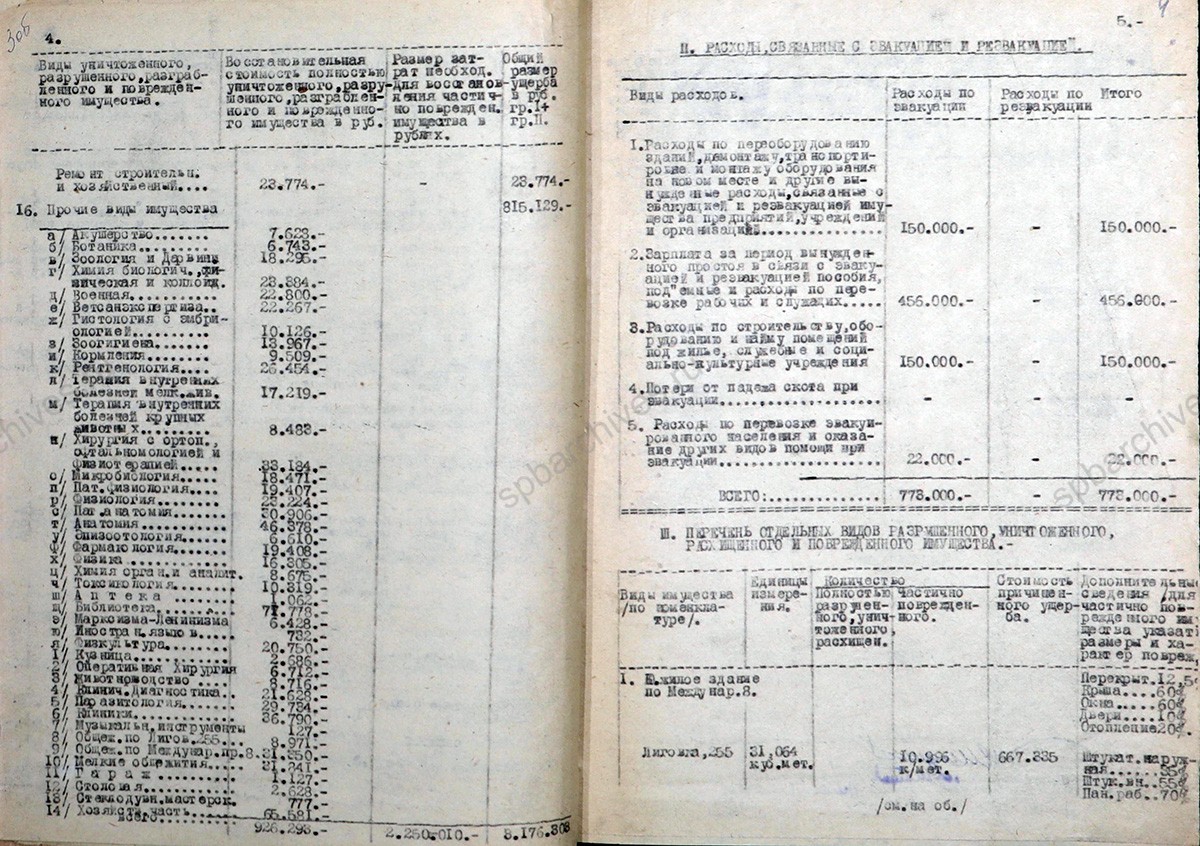 306
4.
Виды уничтоженного,
разрушенного,разграб-
ленного и поврежден-
ного имущества.
Восстановительная
стоимость полностью
уничтоженного,разру-
шенного,разграблен-
ного и поврежденно-
го имущества в руб.
Размер зат-
рат необход.
для восстанов-
ления частич-
но поврежден.
имущества в
рублях.
Общий
размер
ущерба
в руб.
гр.I+
гр.II.
Ремонт строительн.
и хозяйственный.... 23.774.- - 23.774.-
16. Прочие виды имущества 815.129.-
а/ Акушерство....... 7.623.-
б/ Ботаника......... 6.743.-
в/ Зоология и Дарвин 18.295.-
г/ Химия биологич.,фи-
зическая и коллоид. 23.384.-
д/ Военная.......... 22.800.-
е/ Ветсанэкспертиза.. 22.267.-
ж/ Гистология с эмбри-
ологией.......... 10.126.-
з/ Зоогигиена....... 13.967.-
и/ Кормления........ 9.509.-
к/ Рентгенология.... 26.454.-
л/ Терапия внутренних
болезней мелк.жив. 17.219.-
м/ Терапия внутренних
болезней крупных
животных......... 8.483.-
н/ Хирургия с ортоп.,
офтальмологией и
физиотерапией..... 33.184.-
о/ Микробиология.... 18.471.-
п/ Пат.физиология... 19.407.-
р/ Физиология....... 23.224.-
с/ Пат.анатомия..... 30.906.-
т/ Анатомия......... 46.378.-
у/ Эпизоотология.... 6.610.-
ф/ Фармакология..... 19.408.-
х/ Физика........... 16.305.-
ц/ Химия орган.и аналит. 8.675.-
ч/ Токсикология..... 10.319.-
ш/ А п т е к а ..... 1.062.-
щ/ Библиотека....... 77.778.-
э/ Марксизма-Ленинизма 6.428.-
ю/ Иностран.языков.. 732.-
я/ Физкультура...... 20.750.-
1/ Кузница.......... 2.686.-
2/ Оперативная Хирургия 6.712.-
3/ Животноводство .... 8.716.-
4/ Клинич.Диагностика.. 21.628.-
5/ Паразитология.... 29.734.-
6/ Клиники.......... 36.790.-
7/ Музыкальн.инструменты 127.-
8/ Общеж.по Лигов.255... 8.971.-
9/ Общеж.по Междунар.пр.8.31.350.-
10/ Мелкие общежития.. 31.241.-
11/ Г а р а ж ....... 1.127.-
12/ Столовая......... 2.628.-
13/ Стеклодувн.мастерск. 777.-
14/ Хозяйств.часть... 65.581.-
Всего.......... 926.293.- 2.250.010.- 3.176.303
5.-
4
II. РАСХОДЫ,СВЯЗАННЫЕ С ЭВАКУАЦИЕЙ И РЕЭВАКУАЦИЕЙ.
Виды расходов.
Расходы по
эвакуации
Расходы по
реэвакуации
Итого
1.Расходы по переоборудованию
зданий,демонтажу,транспорти-
ровке и монтажу оборудования
на новом месте и другие вы-
нужденные расходы,связанные с
эвакуацией и реэвакуацией иму-
щества предприятий,учреждений
и организаций............... 150.000.- - 150.000.-
2.Зарплата за период вынужден-
ного простоя в связи с эваку-
ацией и реэвакуацией пособия,
под"емные и расходы по пере-
возке рабочих и служащих..... 456.000.- - 456.000.-
3.Расходы по строительству,обо-
рудованию и найму помещений
под жилье, служебные и соци-
ально-культурные учреждения 150.000.- - 150.000.-
4.Потери от падежа скота при
эвакуации.................... - - -
5. Расходы по перевозке эвакуи-
рованного населения и оказа-
ние других видов помощи при
эвакуации.................... 22.000.- - 22.000.-
ВСЕГО:.............. 778.000.- - 778.000.-
III. ПЕРЕЧЕНЬ ОТДЕЛЬНЫХ ВИДОВ РАЗРУШЕННОГО,УНИЧТОЖЕННОГО,
РАСХИЩЕННОГО И ПОВРЕЖДЕННОГО ИМУЩЕСТВА.-
Виды имущества
/по номенкла-
туре/.
Единицы
измере-
ния.
Количество
Полностью
разрушен-
ного,унич-
тоженного,
расхищен.
Частично
поврежден-
ного.
Стоимость
причинен-
ного ущер-
ба.
Дополнительные
сведения /для
частично пов-
режденного им
щества указат
размеры и ха-
рактер повреж.
1. Жилое здание
по Междунар.8.
Перекрыт.12,5%
Крыша....60%
Окна.....60%
Двери....10%
Отопление20%
Лиговка,255 31,064
куб.мет.
10.996
к/мет.
667.335
Штукат.наруж-
ная......35%
Штук.вн..55%
Пан.раб..70%
/см.на об./
spbarchives.ru